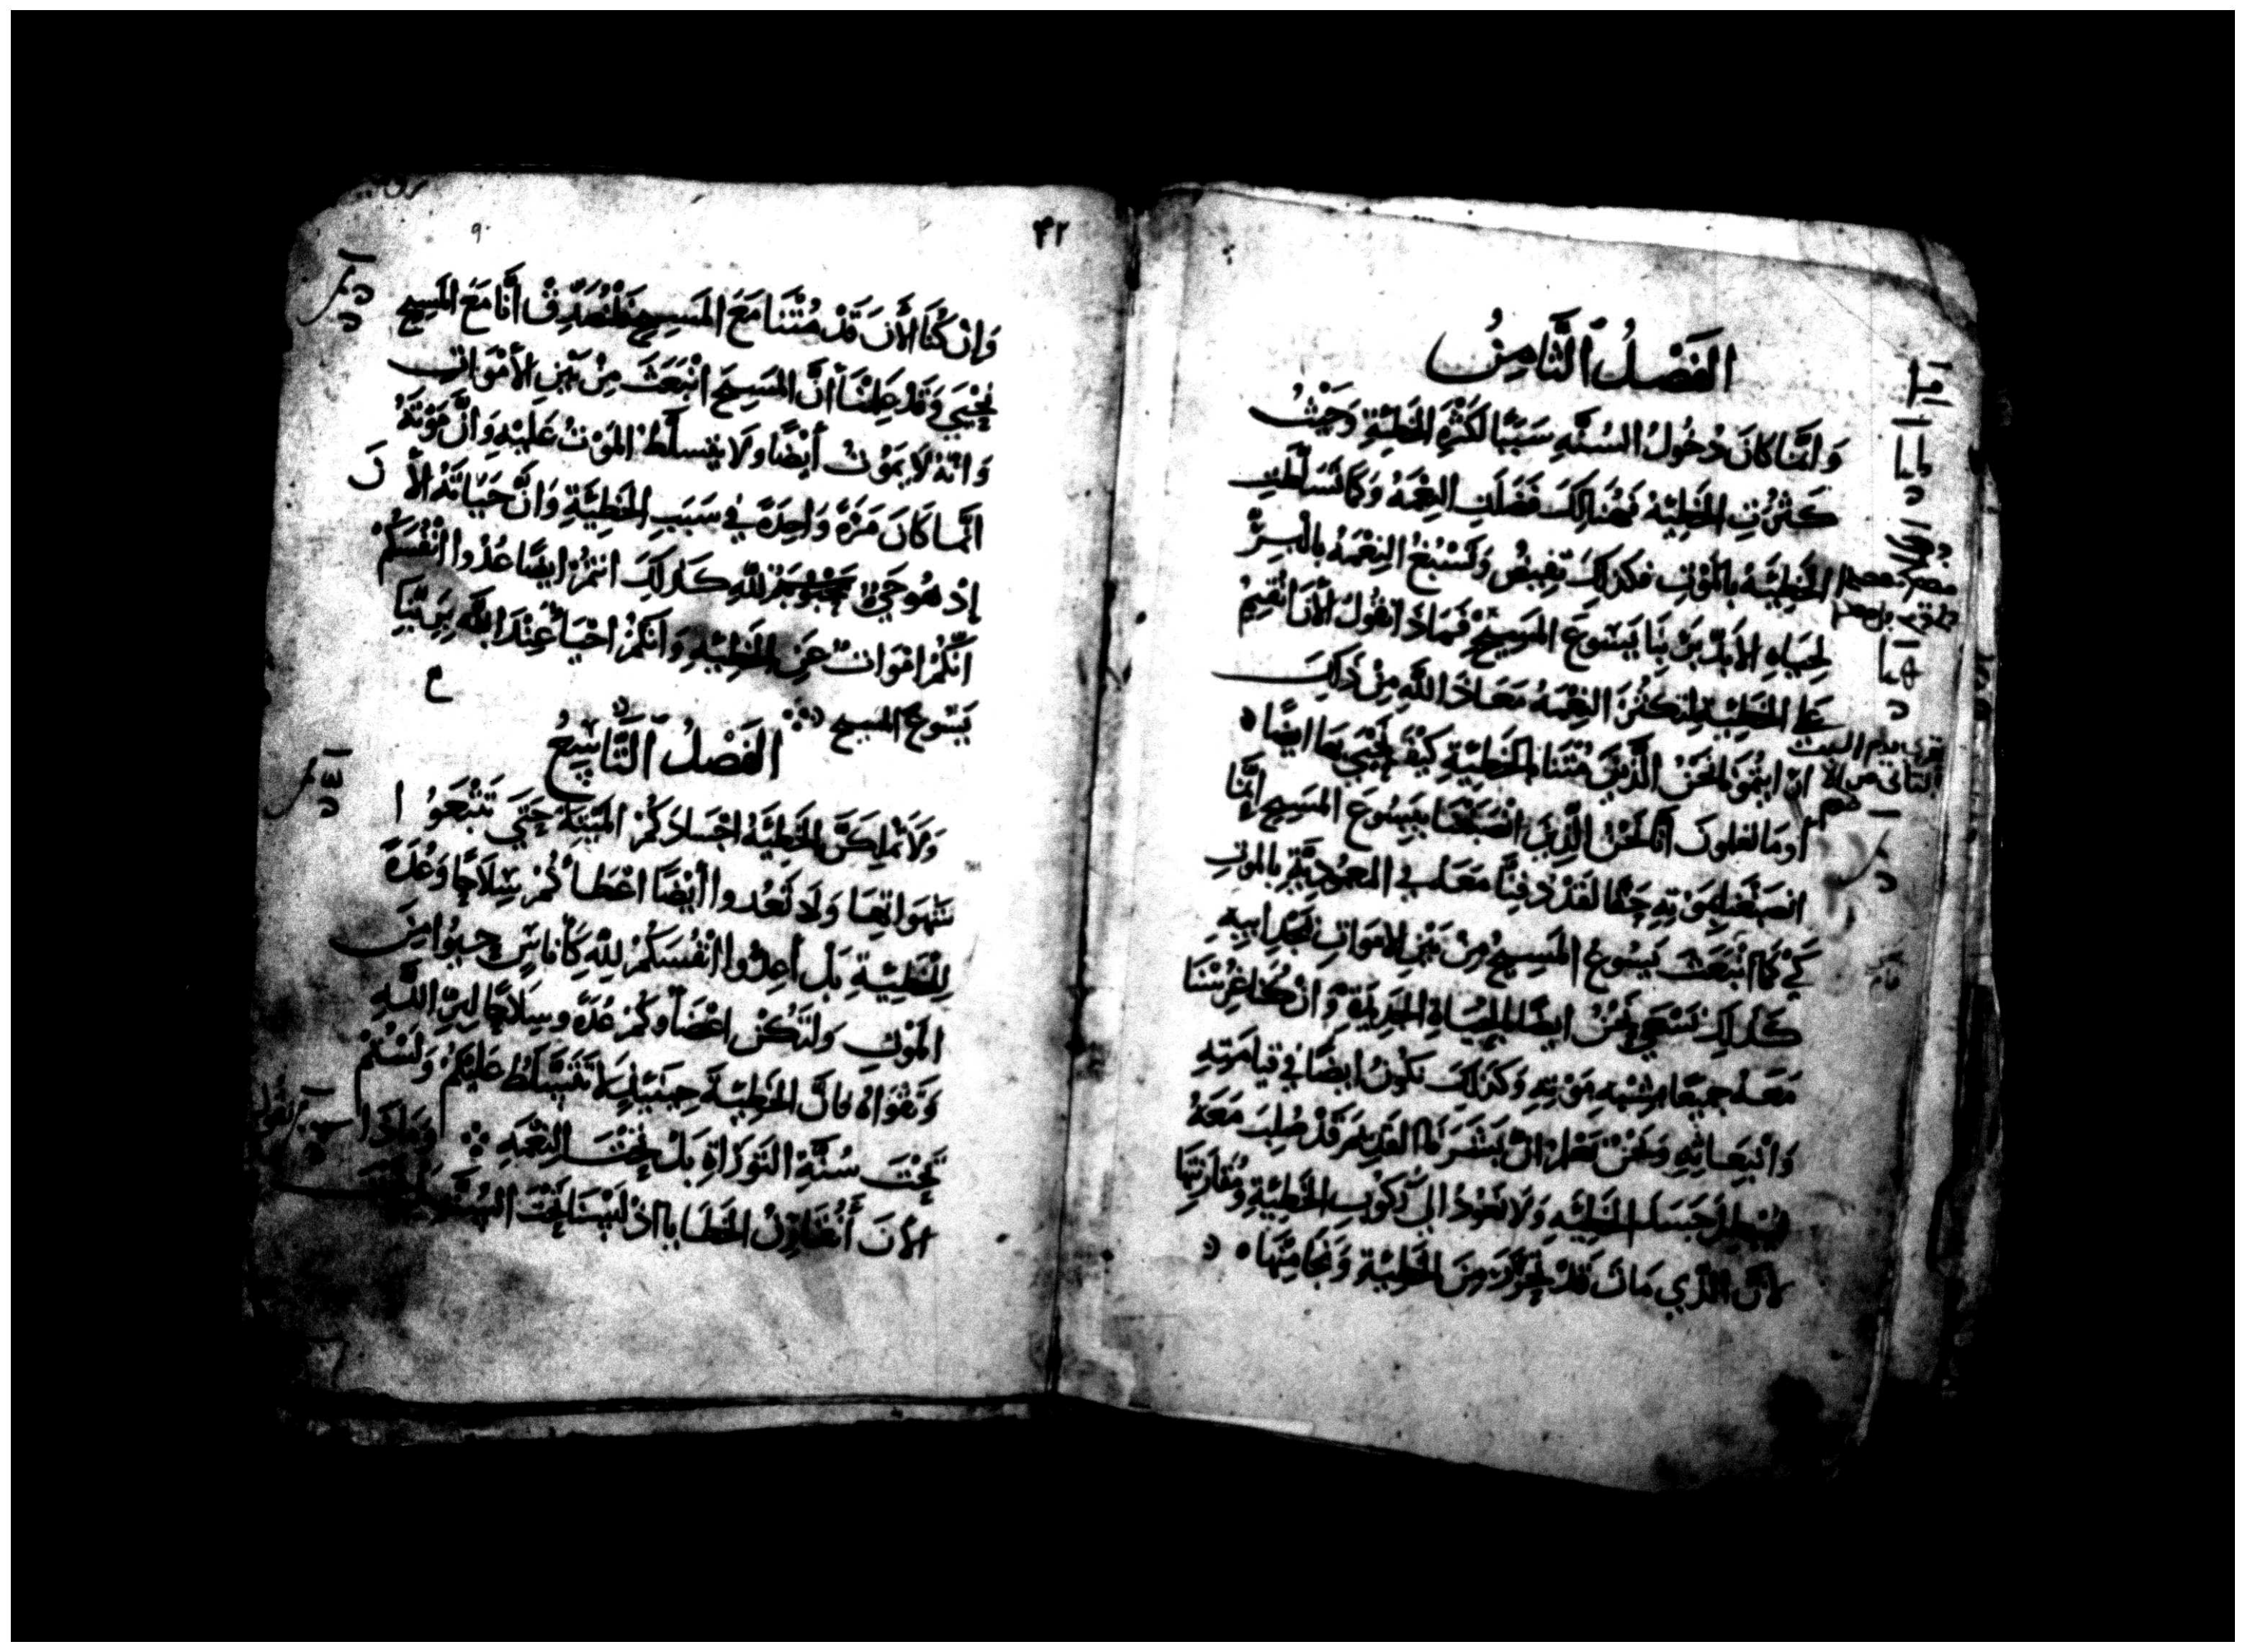 الفَصْلُ الثَّامِنُ
وَانَّمَا كَانَ دُخُولُ السُنَّهِ سَبَبًا لكَثْرَةِ الخَطِيَّةِ وَحَيْثُ
كَثُرَتِ الخَطِيَّة فَهُنَالِكَ فَضَلَتِ النِعْمَةُ وَكَمَا تَسَلَّطَتِ
الخَطِيَّةُ بالمَوْتِ فكَذلِكَ تَفِيضُ وَتَسْبُغُ النِعْمَةُ بالْبِرِّ
لِحَيَاةِ الأبَدِ بِرَبِّنَا يَسُوعَ المَسِيحِ فَمَاذَا نَقُولُ الأنَ انُقِيمُ
عَلَى الخَطِيَّةِ لِتَكثُرَ النِعْمَةُ مَعَاذَ اللَّهِ مِنْ ذَلِكَ
نَحْنُ الَّذِينَ مُتْنَا بالخَطِيَّةِ كَيْفَ نَحْيَى بِهَا ايضًا
أومَا تعلمونَ انَّا نَحْنُ الَّذِينَ انْصَبَغْنَا بِيَسُوعَ المَسِيحِ انَّمَا
انصَبَغْنَا بِمَوْتِهِ حَقًّا لقَدْ دُفِنَّا مَعَهُ في المعمُودِيَّةِ بالموْتِ
كَيْ كَمَا انْبَعَثَ يَسُوعُ المَسِيحُ مِنْ بَيْنِ الامْوَاتِ بمَجْدِ ابِيهِ
كَذلِكَ نَسْعَى نَحْنُ ايضًا بالحَيَاةِ الجَدِيدَةِ وَانْ كُنَّا غُرِسْنَا
مَعَهُ جميعًا بِشِبْهِ مَوْتِهِ وَكَذلِكَ نَكُونُ ايضًا في قيامَتِهِ
وَانْبِعَاثِهِ وَنَحْنُ نَعْلَمُ انَّ بَشَرَنَا القدِيمَ قَدْ صُلِبَ مَعَهُ
ليَبْطِلَ جَسَدُ الخَطِيَّةِ وَلَا نَعُودُ الى رُكُوبِ الخَطِيَّةِ وَمُقَارَنَتِهَا
لأَنَّ الَّذِي مَاتَ قَدْ تَحَرَّرَ مِنَ الخَطِيَّةِ وَنَجَا مِنْهَا
٤٢
وَانْ كُنَّا الأَنَ قَدْ مُتْنَا مَعَ المَسِيحِ فَلْنُصَدِّقْ أنَّا مَعَ المَسِيحِ
نَحْيَى وَقَدْ عَلِمْنَا أنَّ المَسِيحَ انْبَعَثَ مِنْ بَيْنِ الأَمْوَاتِ
وَانَّهُ لَا يَمُوتُ أيْضًا وَلَا يتسلَّطُ المَوْتُ عَلَيْهِ وَانَّ مَوْتَهُ
انَّمَا كَانَ مَرَّةً وَاحِدَةً في سَبَبِ الخَطِيَّةِ وَانَّ حَيَاتَهُ الأنَ
إذْ هُوَ حَيٌّ للَّهِ كَذَلِكَ انتُمْ ايضًا عُدُّوا انْفُسَكُمْ
انَّكُمْ امْوَاتٌ عَنِ الخَطِيَّةِ وَانَّكُمْ احْيَاءٌ عِنْدَ اللَّهِ بِرَبِّنَا
يَسُوعَ المسيح
الفَصْلُ التَّاسِعُ
وَلَا تَمْلِكَنَّ الخَطِيَّةُ اجْسَادَكُمُ المَيِّتَةَ حَتَّى تَتْبَعُوا
شَهَوَاتِهَا وَلَا تُعُدوا أيْضًا اعْضَاءكُمْ سِلَاحًا وَعُدَةً
لِلْخَطِيَّةِ بَلْ أعِدُّوا انْفُسَكُمْ للَّهِ كَأُنَاسٍ حيوا مِنَ
المَوْتِ وَلتَكُنْ اعْضَاوكُمْ عُدَّةً وَسِلَاحًا لبِرِّ اللَّهِ
وَتَقْوَاهُ فَانَّ الخَطِيَّةَ حِينَئِذٍ لَا تتَسَلَّطُ عَلَيْكُمْ وَلَسْتُمْ
تَحْتَ سُنَّةِ التَوْرَاةِ بَلْ تَحْتَ النِعْمَةِ وَمَاذَا
الأنَ أنُقَارِفُ الخَطَايَا اذْ لَيْسَنَا تَحْتَ السُنَّةِ